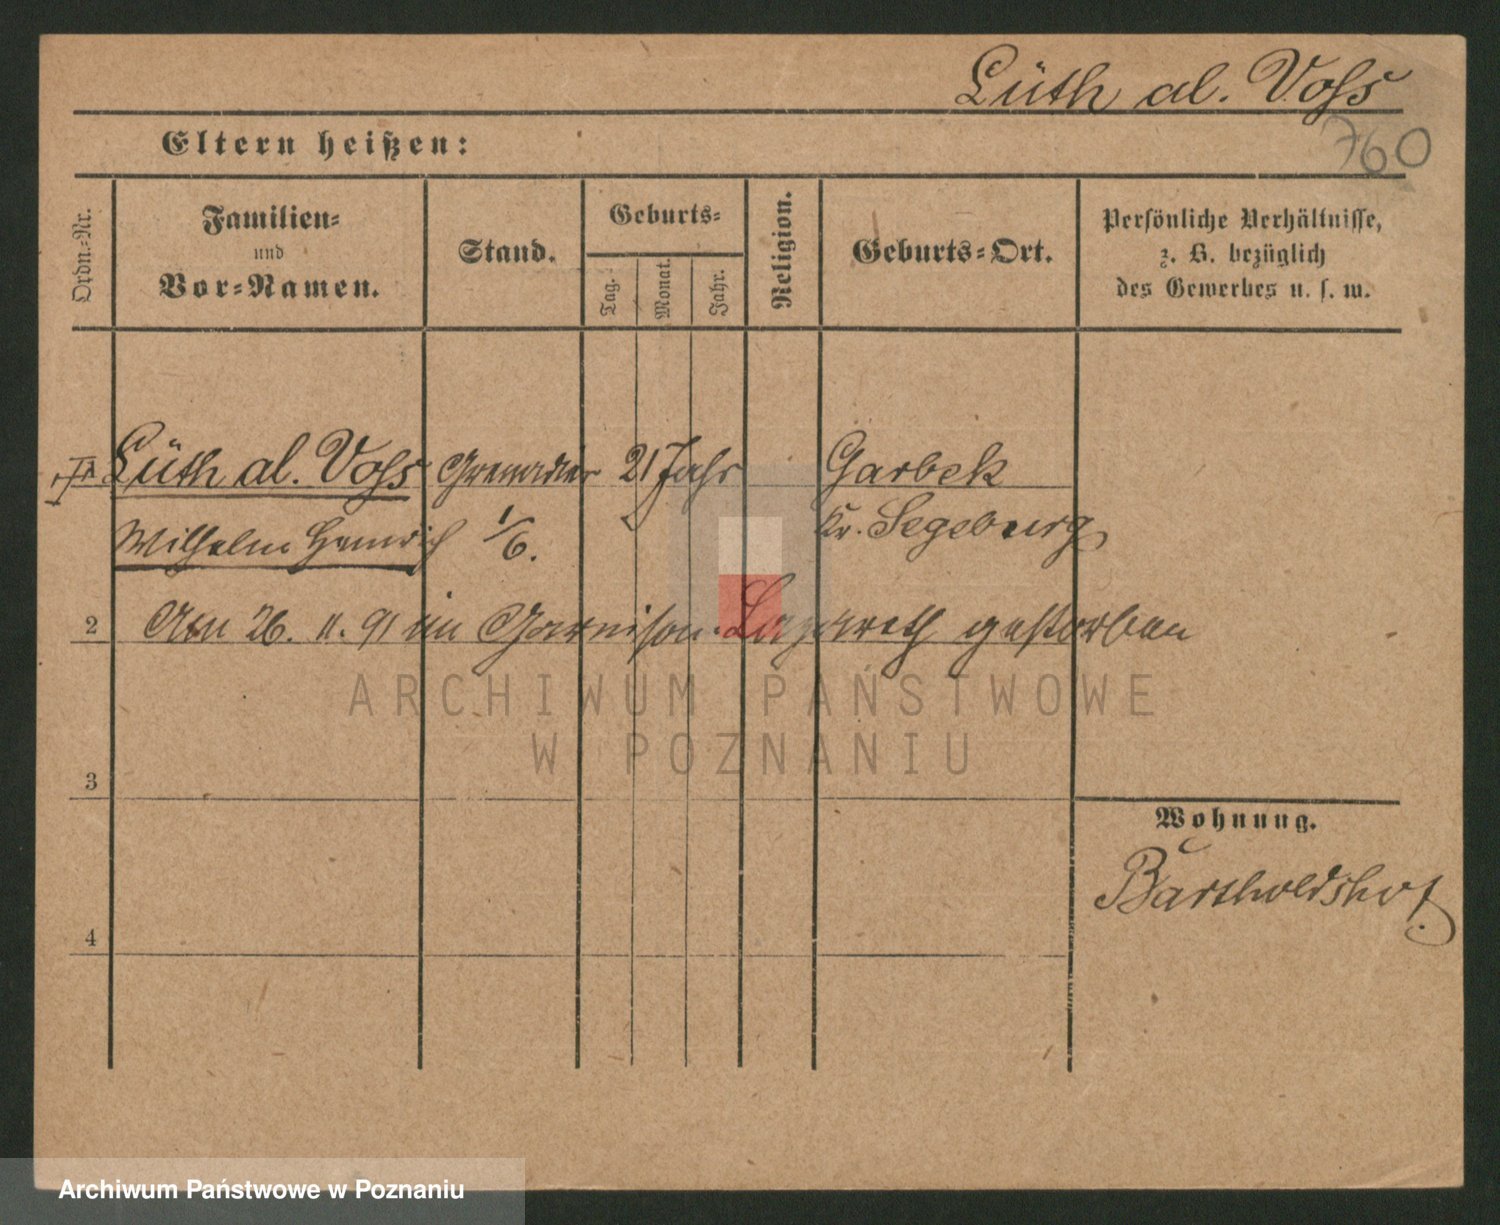 Lüth al. Voss
760
Eltern heißen:
Ordn.=Nr.
Familien=
und
Vor=Namen.
Stand.
Geburts=
Tag.
Monat.
Jahr.
Religion.
Geburts=Ort.
Persönliche Verhältnisse,
z. B. bezüglich
des Gewerbes u. s. w.
Lüth al. Voss Grenadier 21 Jahr Garbek
Wilhelm Heinrich 1/6. Kr. Segeburg
2 Am 26. 11. 91 im Garnison-Lazareth gestorben
ARCHIWUM PAŃSTWOWE
W POZNANIU
3
Wohnung.
Bartholdshof.
4
Archiwum Państwowe w Poznaniu